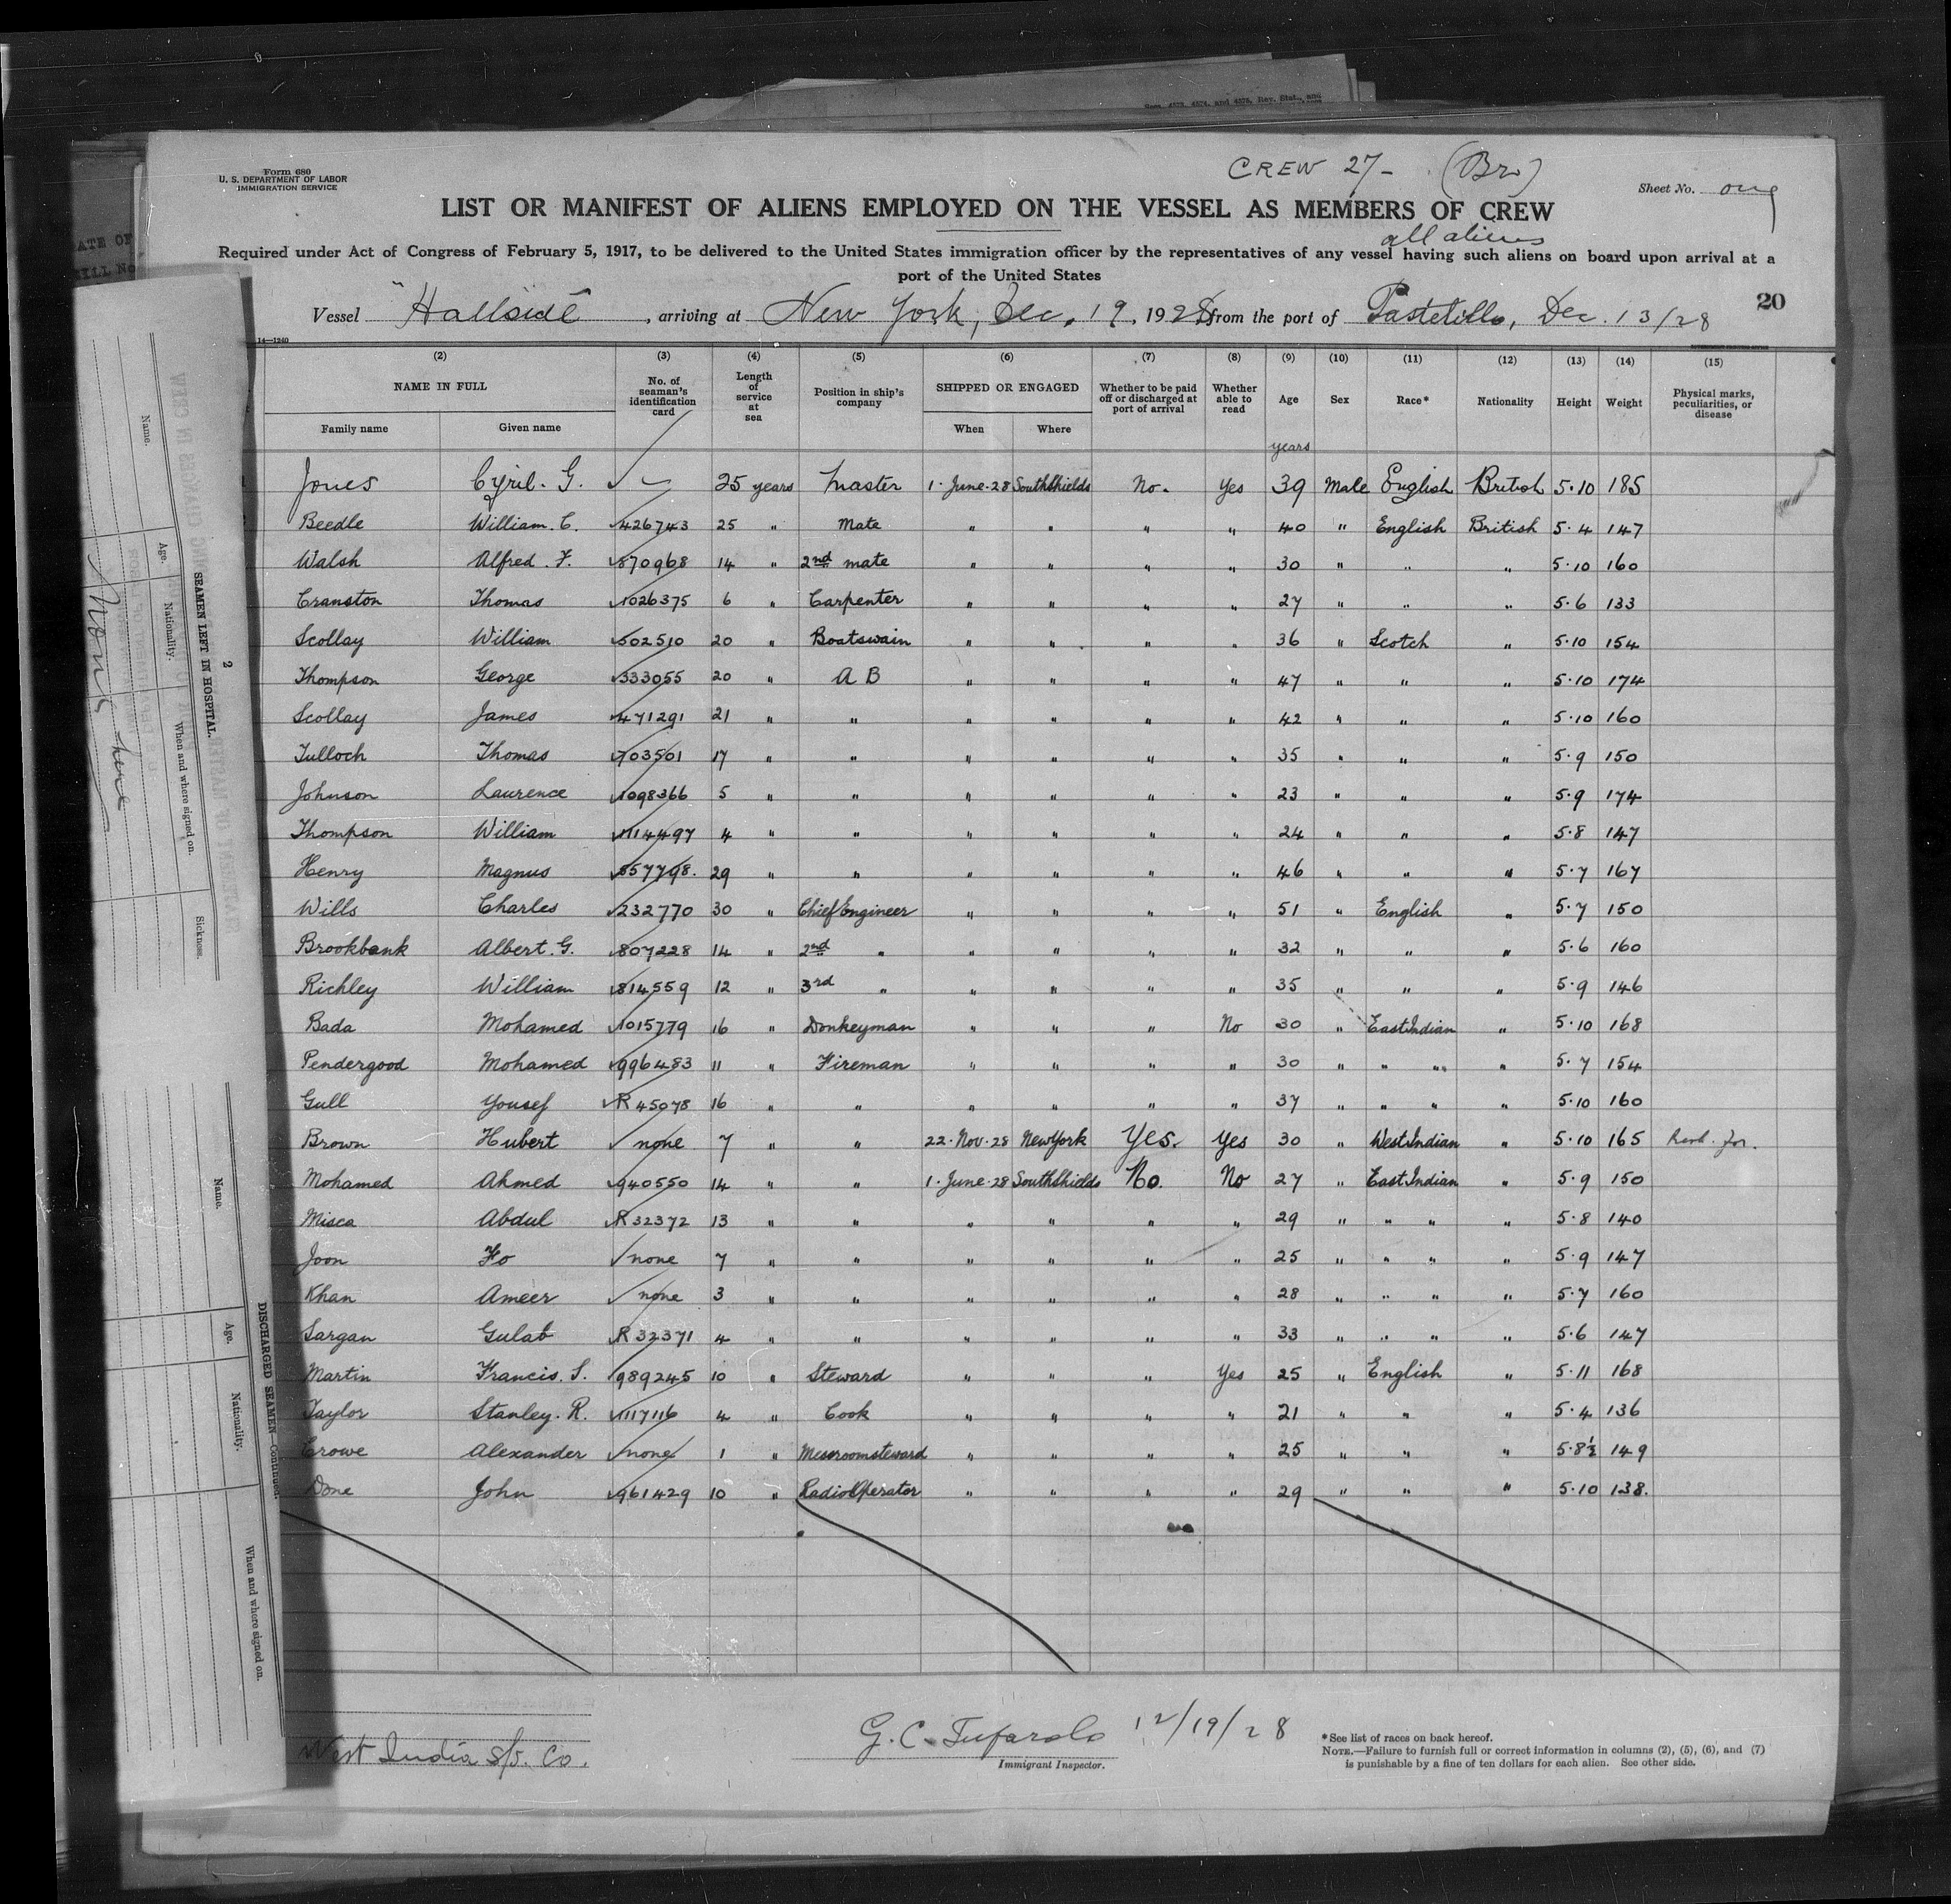 CREW 27 - (Br)
Form 680
U. S. DEPARTMENT OF LABOR
IMMIGRATION SERVICE
Sheet No. one
LIST OR MANIFEST OF ALIENS EMPLOYED ON THE VESSEL AS MEMBERS OF CREW
all aliens
Required under Act of Congress of February 5, 1917, to be delivered to the United States immigration officer by the representatives of any vessel having such aliens on board upon arrival at a
port of the United States
20
Vessel "Hallside", arriving at New York, Dec. 19, 1928, from the port of Pastelillo, Dec. 13/28
14—1240
(2) (3) (4) (5) (6) (7) (8) (9) (10) (11) (12) (13) (14) (15)
NAME IN FULL No. of seaman's identification card Length of service at sea Position in ship's company SHIPPED OR ENGAGED Whether to be paid off or discharged at port of arrival Whether able to read Age Sex Race* Nationality Height Weight Physical marks, peculiarities, or disease
Family name Given name When Where
years
Jones Cyril. G. ✓ - 25 years Master 1. June. 28 South Shields No. Yes 39 Male English British 5.10 185
Beedle William. C. 426743 25 " Mate " " " " 40 " English British 5.4 147
Walsh Alfred. F. 870968 14 " 2nd mate " " " " 30 " " " 5.10 160
Cranston Thomas 1026375 6 " Carpenter " " " " 27 " " " 5.6 133
Scollay William 502510 20 " Boatswain " " " " 36 " Scotch " 5.10 154
Thompson George 333055 20 " A B " " " " 47 " " " 5.10 174
Scollay James 471291 21 " " " " " " 42 " " " 5.10 160
Tulloch Thomas 703501 17 " " " " " " 35 " " " 5.9 150
Johnson Laurence 1098366 5 " " " " " " 23 " " " 5.9 174
Thompson William 1114497 4 " " " " " " 24 " " " 5.8 147
Henry Magnus 857798. 29 " " " " " " 46 " " " 5.7 167
Wills Charles 232770 30 " Chief Engineer " " " " 51 " English " 5.7 150
Brookbank Albert. G. 807228 14 " 2nd " " " " " 32 " " " 5.6 160
Richley William 814559 12 " 3rd " " " " " 35 " " " 5.9 146
Bada Mohamed 1015779 16 " Donkeyman " " " No 30 " East Indian " 5.10 168
Pendergood Mohamed 996483 11 " Fireman " " " " 30 " " " " 5.7 154
Gull Yousef R 45078 16 " " " " " " 37 " " " " 5.10 160
Brown Hubert ✓ none 7 " " 22. Nov. 28 New York Yes. Yes 30 " West Indian " 5.10 165
Mohamed Ahmed 940550 14 " " 1. June. 28 South Shields No. No 27 " East Indian " 5.9 150
Misca Abdul R 32372 13 " " " " " " 29 " " " " 5.8 140
Joon Fo ✓ none 7 " " " " " " 25 " " " " 5.9 147
Khan Ameer ✓ none 3 " " " " " " 28 " " " " 5.7 160
Sargan Gulab R 32371 4 " " " " " " 33 " " " " 5.6 147
Martin Francis. S. 989245 10 " Steward " " " Yes 25 " English " 5.11 168
Taylor Stanley. R. 1117116 4 " Cook " " " " 21 " " " 5.4 136
Crowe Alexander ✓ none 1 " Messroom steward " " " " 25 " " " 5.8½ 149
Done John 961429 10 " Radio Operator " " " " 29 " " " 5.10 138.
West India S/S. Co.
G. C. Tufarolo 12/19/28
Immigrant Inspector.
*See list of races on back hereof.
NOTE.—Failure to furnish full or correct information in columns (2), (5), (6), and (7)
is punishable by a fine of ten dollars for each alien. See other side.
2
SEAMEN LEFT IN HOSPITAL.
Name. Age. Nationality. When and where signed on. Sickness.
DISCHARGED SEAMEN—Continued.
Name. Age. Nationality. When and where signed on.